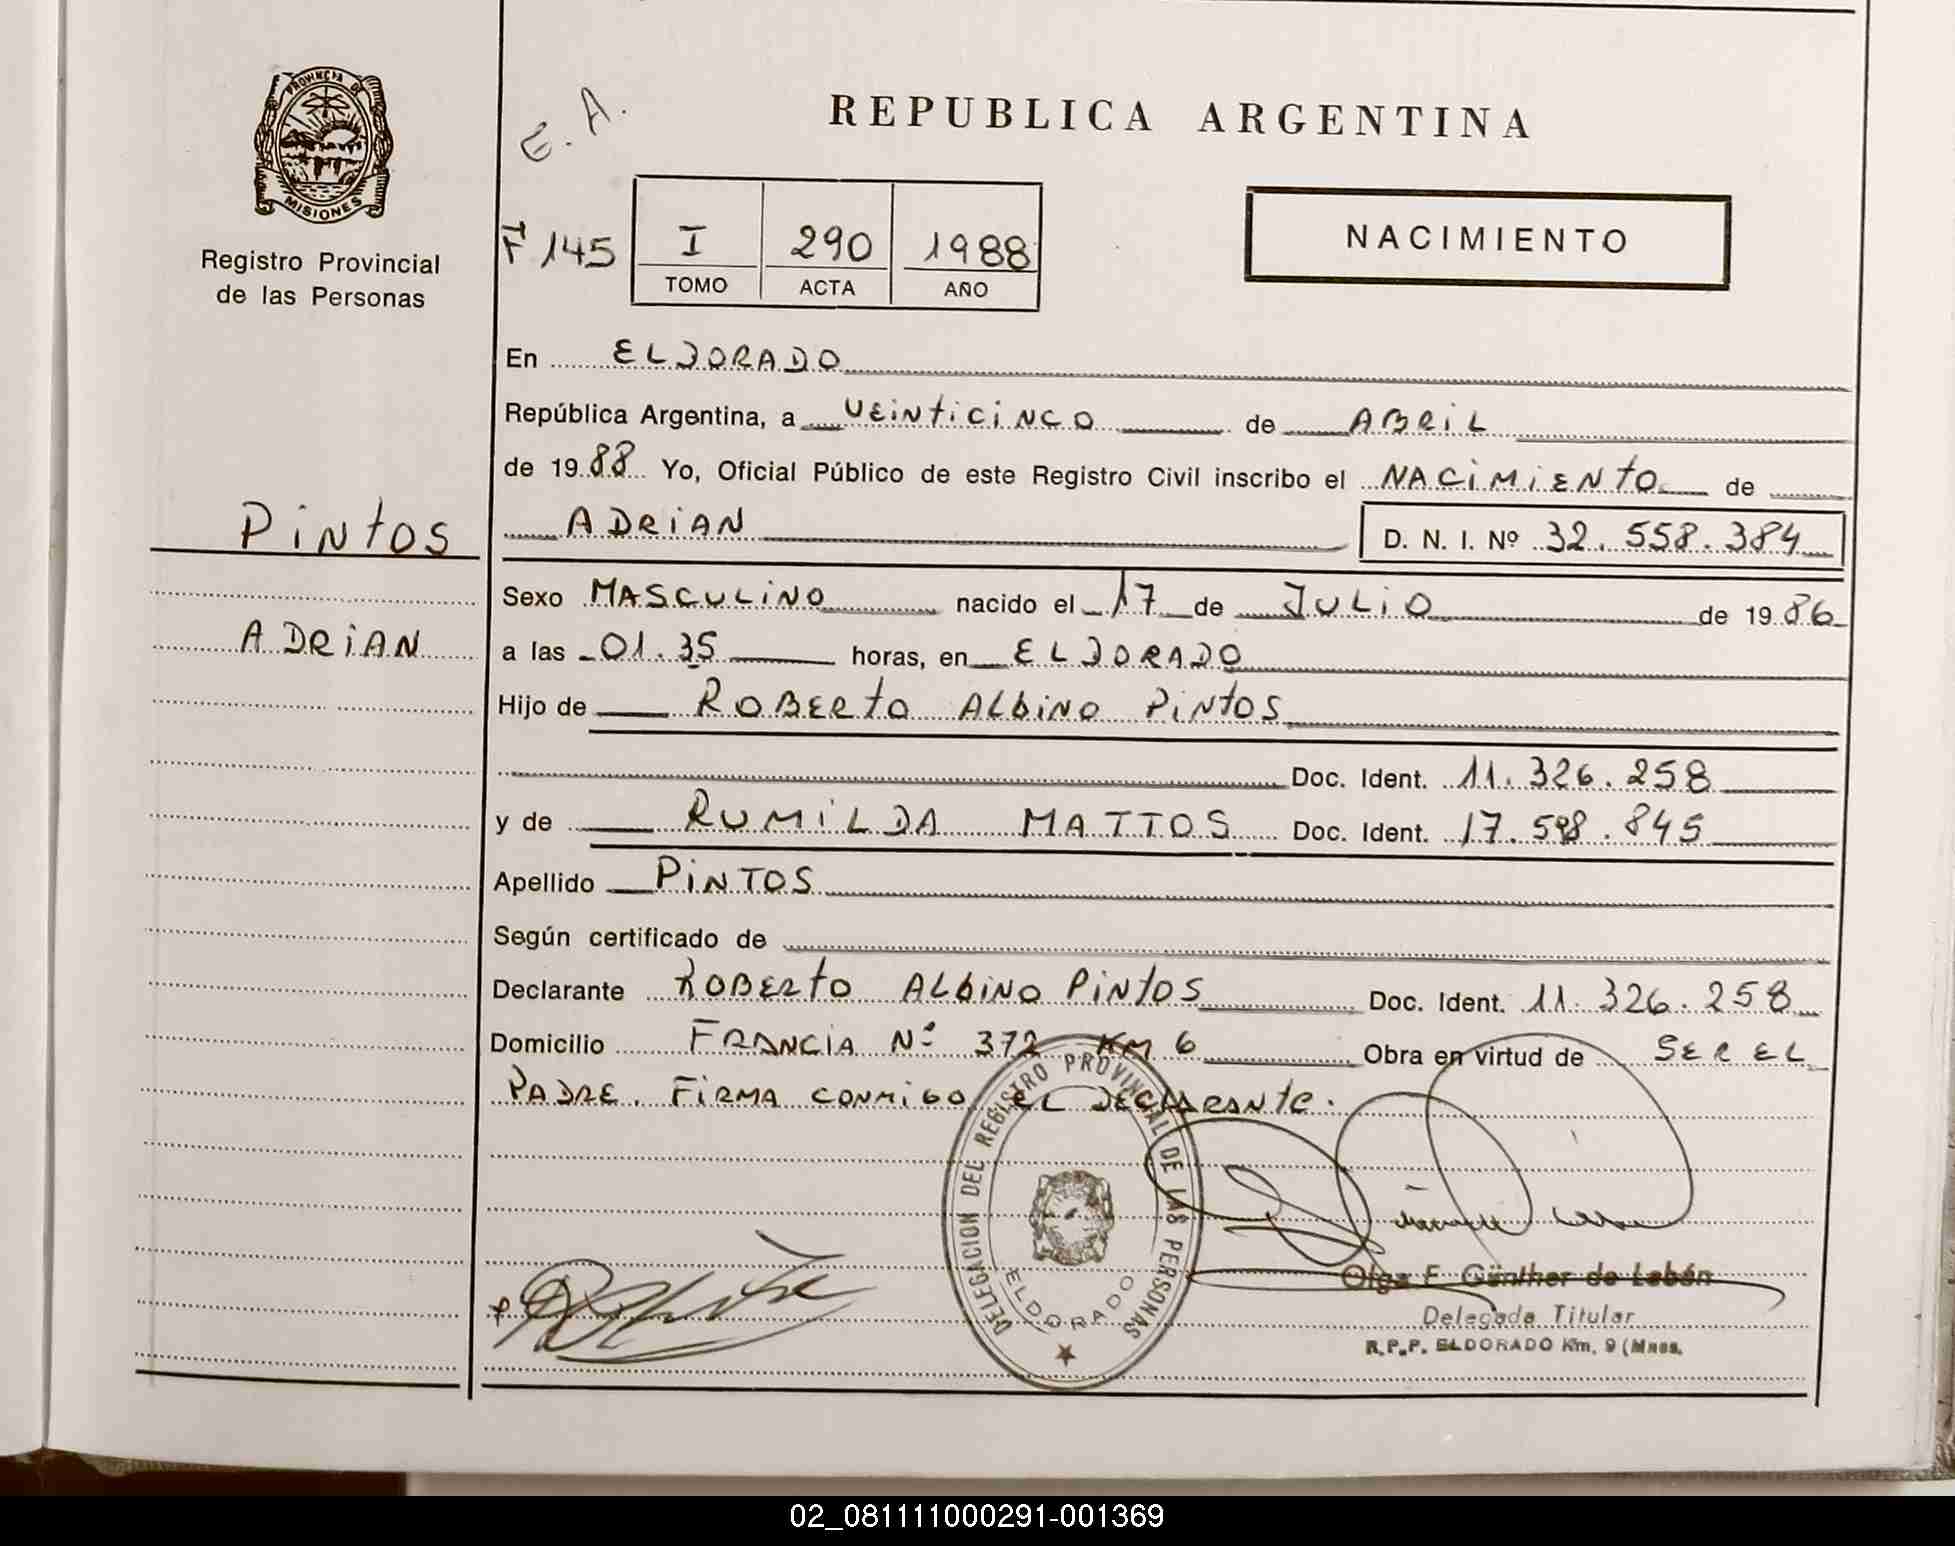 PROVINCIA DE
MISIONES
Registro Provincial
de las Personas
E. A.
REPUBLICA ARGENTINA
F 145
I 290 1988
TOMO ACTA AÑO
NACIMIENTO
En ELDORADO
República Argentina, a VEINTICINCO de ABRIL
de 1988 Yo, Oficial Público de este Registro Civil inscribo el NACIMIENTO de
PINTOS
ADRIAN D. N. I. Nº 32.558.384
Sexo MASCULINO nacido el 17 de JULIO de 1986
ADRIAN
a las 01.35 horas, en ELDORADO
Hijo de ROBERTO ALBINO PINTOS
Doc. Ident. 11.326.258
y de RUMILDA MATTOS Doc. Ident. 17.598.845
Apellido PINTOS
Según certificado de
Declarante ROBERTO ALBINO PINTOS Doc. Ident. 11.326.258
Domicilio FRANCIA Nº 372 KM 6 Obra en virtud de SER EL
PADRE. FIRMA CONMIGO EL DECLARANTE.
DELEGACION DEL REGISTRO PROVINCIAL DE LAS PERSONAS
ELDORADO
Olga E. Günther de Labán
Delegada Titular
R.P.P. ELDORADO Km. 9 (Mnes.
02_081111000291-001369